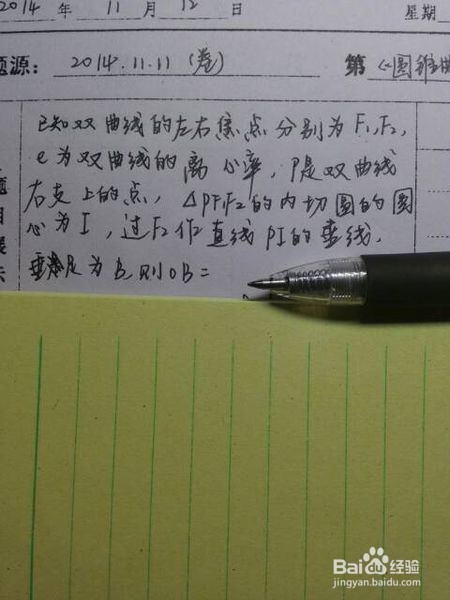 2014 年 11 月 12 日 星期
题源: 2014.11.11 (卷) 第 《圆锥曲
已知双曲线的左右焦点分别为F₁,F₂,
e为双曲线的离心率,P是双曲线
右支上的点,△PF₁F₂的内切圆的圆
心为I,过F₂作直线PI的垂线,
垂足为B,则OB=
题目展示
Bai du 经验
jingyan.baidu.com